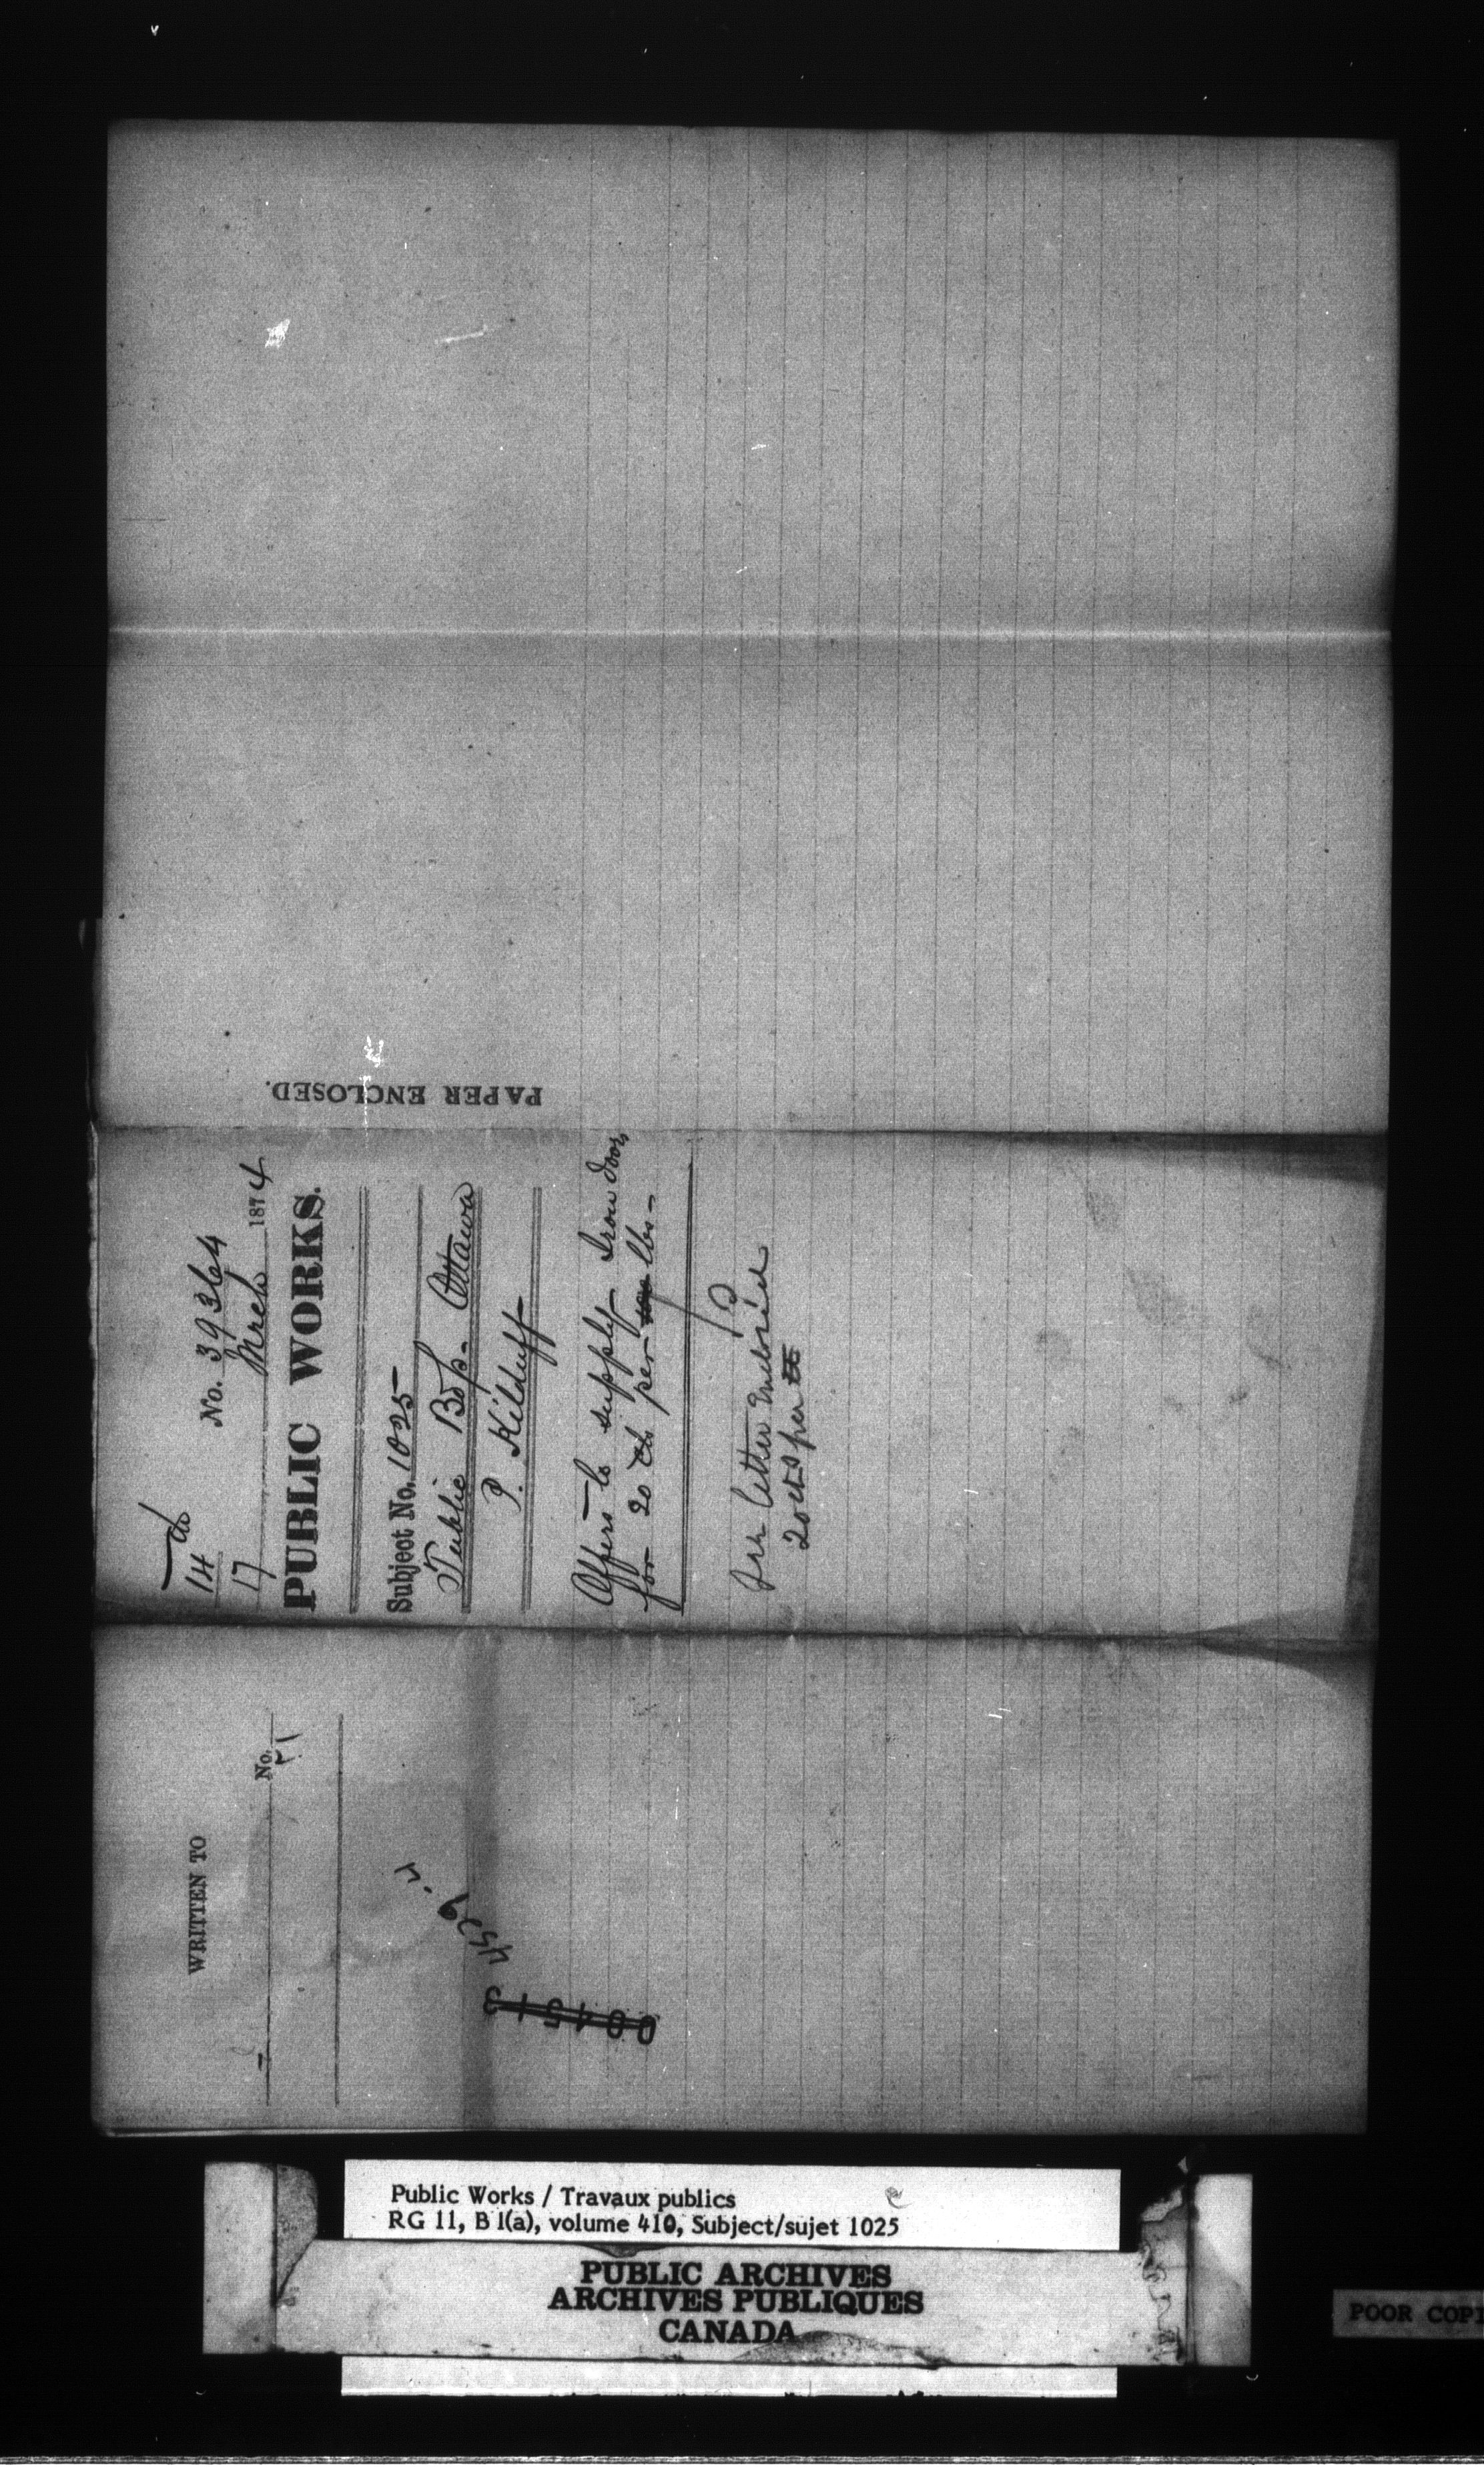 PAPER ENCLOSED.
14
17
No. 39364
Mrch 1874
PUBLIC WORKS.
Subject No. 1025
Public Bdgs. Ottawa
P. Kilduff
Offers to supply Iron doors
for 20 cts per lbs-
letter Enclosed
20 cts per
WRITTEN TO
No.
Public Works / Travaux publics
RG 11, B 1(a), volume 410, Subject/sujet 1025
PUBLIC ARCHIVES
ARCHIVES PUBLIQUES
CANADA
POOR COPY